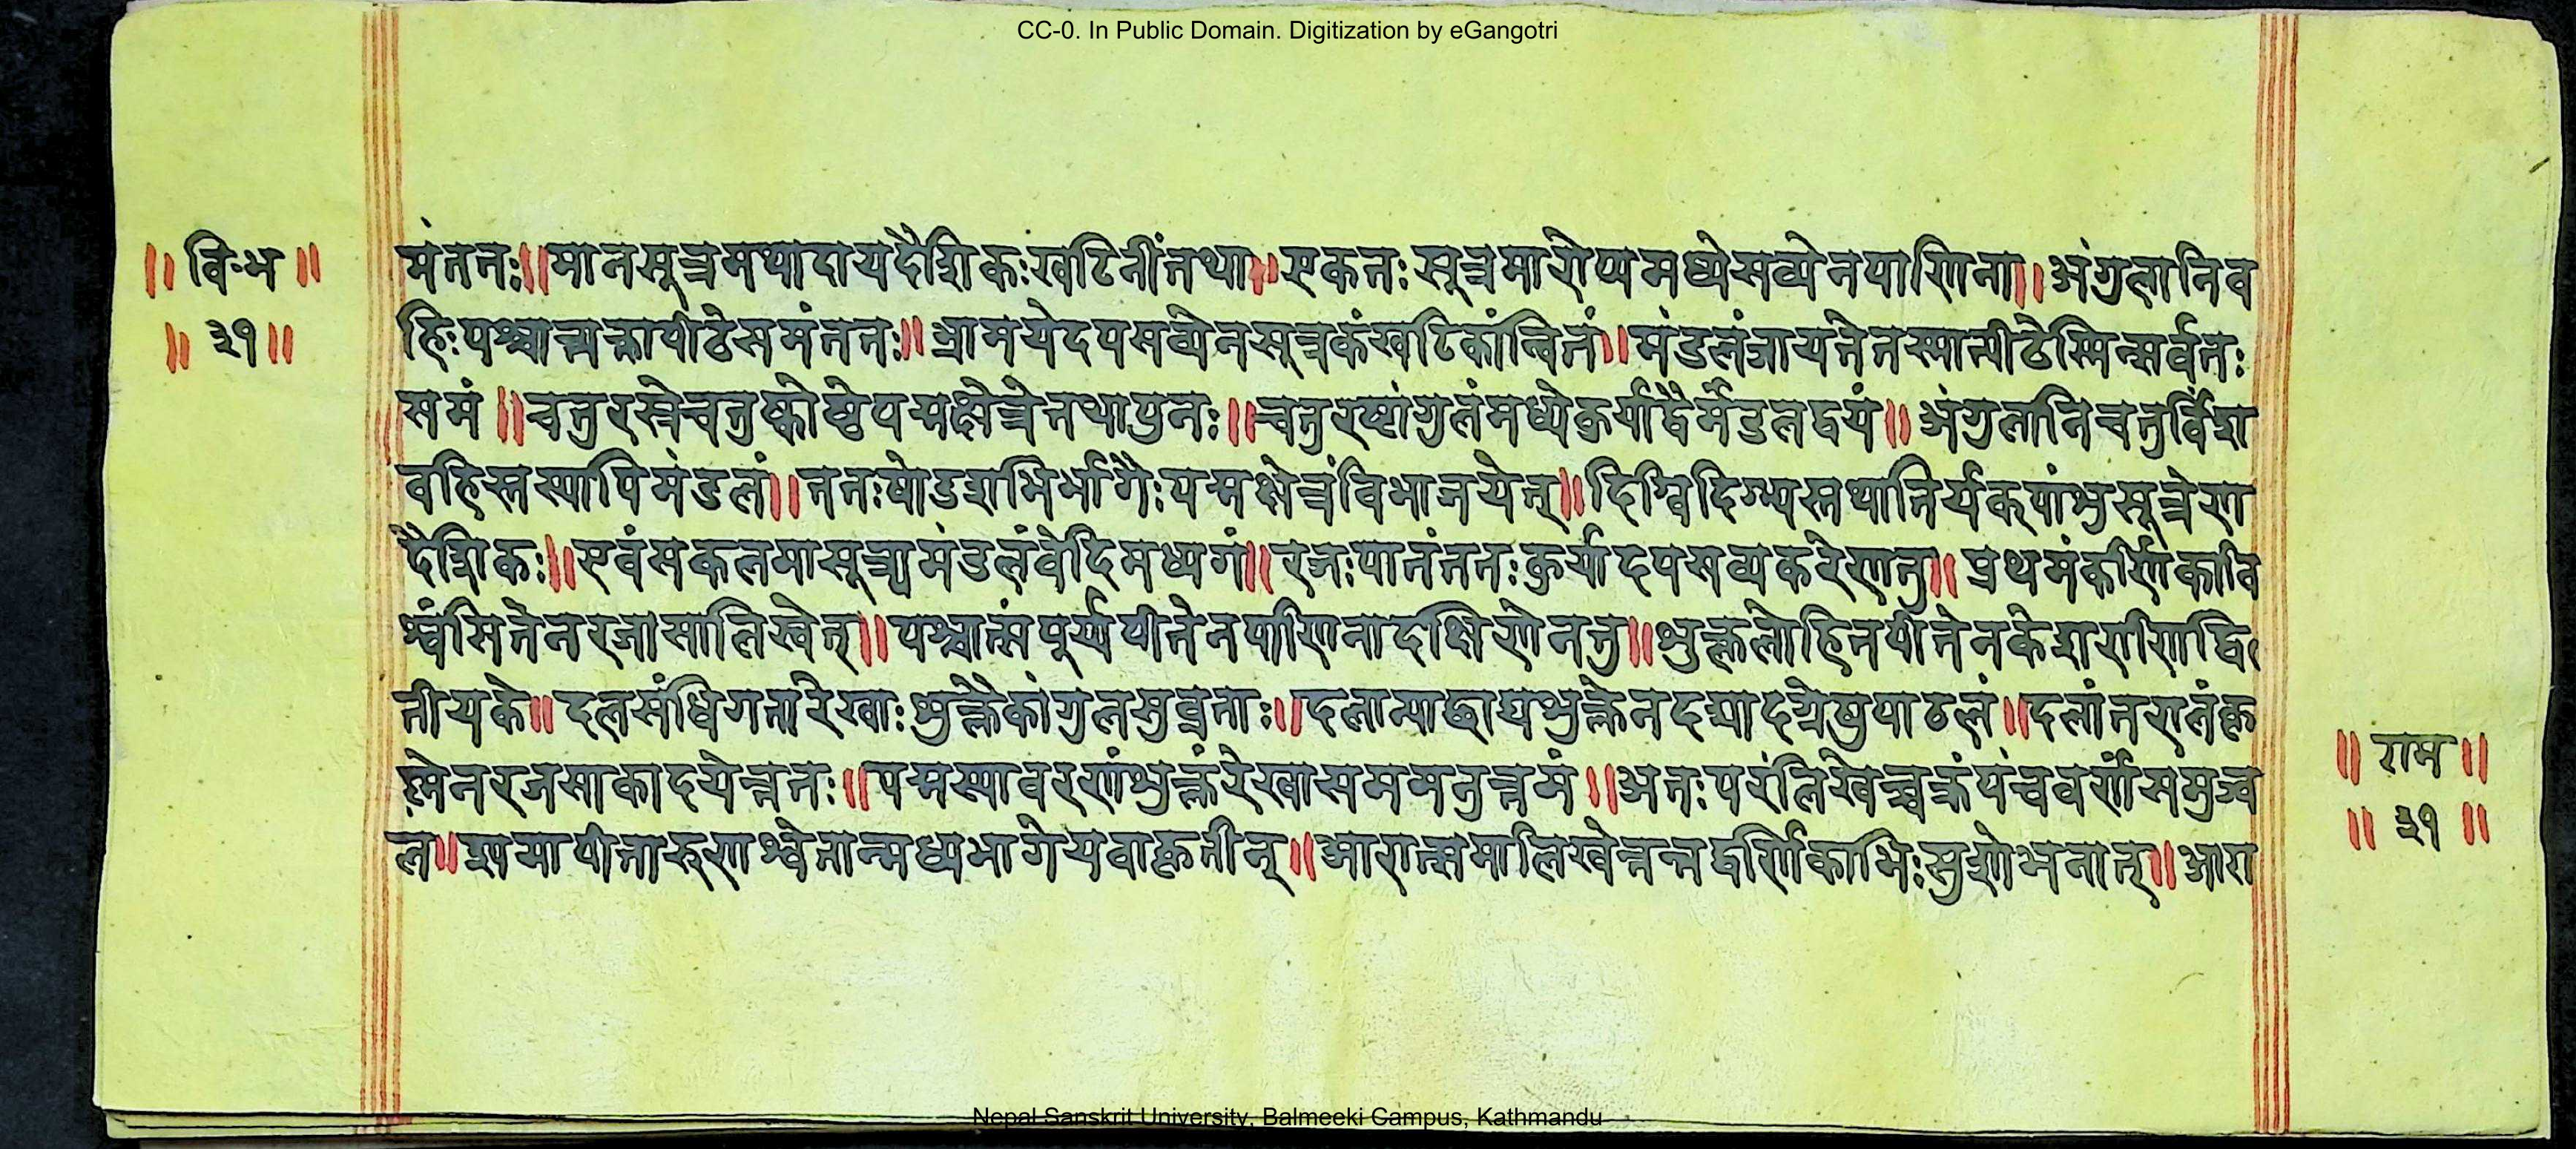 CC-0. In Public Domain. Digitization by eGangotri
॥ वि॰भ ॥
॥ ३१ ॥
मंततः ॥ मानसूत्रमथादाय दैशिकः खटिनीं तथा ॥ एकतः सूत्रमारोप्य मध्ये सव्येन पाणिना ॥ अंगुलानि व
हिः पश्चात्त्यक्त्वा पीठे समंततः ॥ भ्रामयेदपसव्येन सूत्रकं खटिकांन्वितं ॥ मंडलं जायते तस्मात्पीठेस्मिन्सर्वतः
समं ॥ चतुरस्ने चतुष्कोष्ठे पद्मक्षेत्रे तथा पुनः ॥ चतुरष्टांगुलं मध्ये कुर्याद्वै मंडलद्वयं ॥ अंगुलानि चतुर्विंश
वहिस्तस्यापि मंडलं ॥ ततः षोडशभिर्भागैः पद्मक्षेत्रं विभाजयेत् ॥ दिग्विदिग्भ्यस्तथा तिर्यक् पांशुसूत्रेण
दैशिकः ॥ एवं सकलमासूत्र्य मंडलं वेदिमध्यगं ॥ रजःपातं ततः कुर्यादपसव्यकरेण तु ॥ प्रथमं कर्णिकावि
श्वं सितेन रजसालिखेत् ॥ पश्चात्संपूर्य पीतेन पाणिना दक्षिणेन तु ॥ शुक्ललोहितपीतेन केशराणि द्वि
तीयके ॥ दलसंधिगता रेखाः शुक्लैकांगुलसुव्रताः ॥ दलान्याछाद्य शुक्लेन दद्यादग्रेषु पाठलं ॥ दलांतरालं कृ
ष्मेन रजसाकादयेत्ततः ॥ पद्मस्यावरणं शुक्लं रेखासममनुत्तमं ॥ अतः परं लिखेच्चक्रं पंचवर्णं समुज्व
ल ॥ श्यामापीतारुणाश्वेतान्मध्यभागे यवाकृतीन् ॥ आरान्समालिखेत्तत्र द्वर्णिकाभिः सुशोभनान् ॥ आरा
॥ राम ॥
॥ ३१ ॥
Nepal Sanskrit University, Balmeeki Campus, Kathmandu